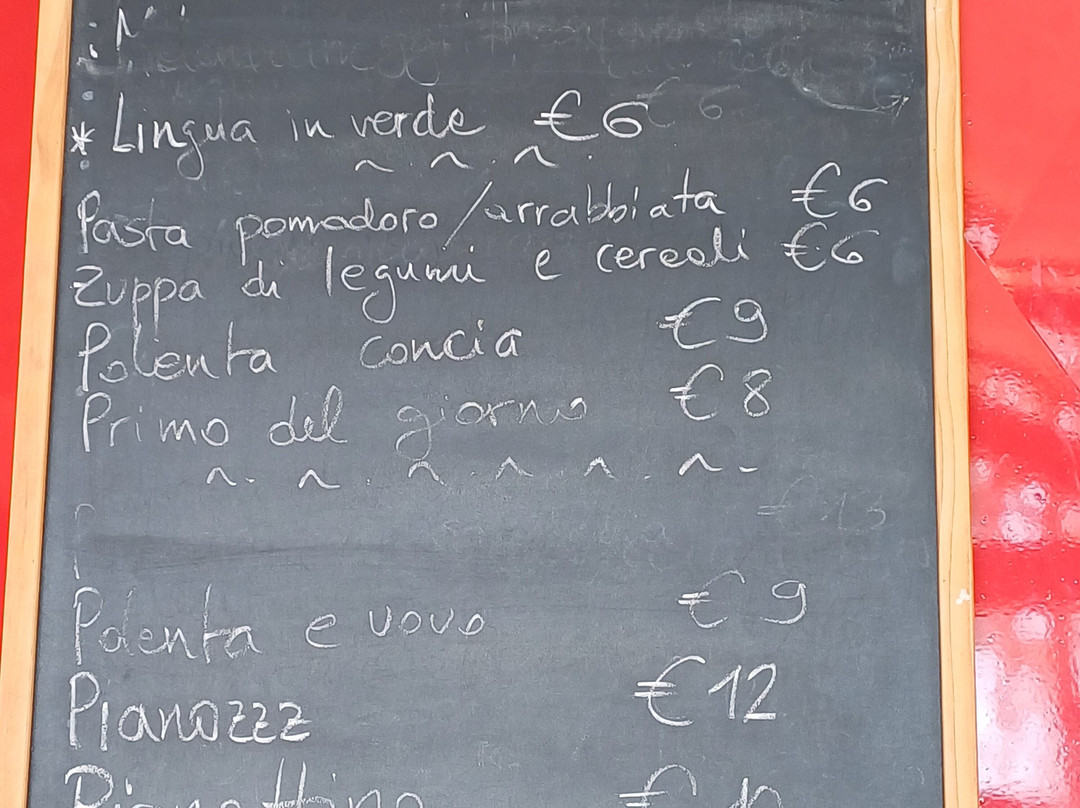 * Lingua in verde €6
Pasta pomodoro/arrabbiata €6
Zuppa di legumi e cereali €6
Polenta concia €9
Primo del giorno €8
€ 13
Polenta e uovo €9
Pianozzz €12